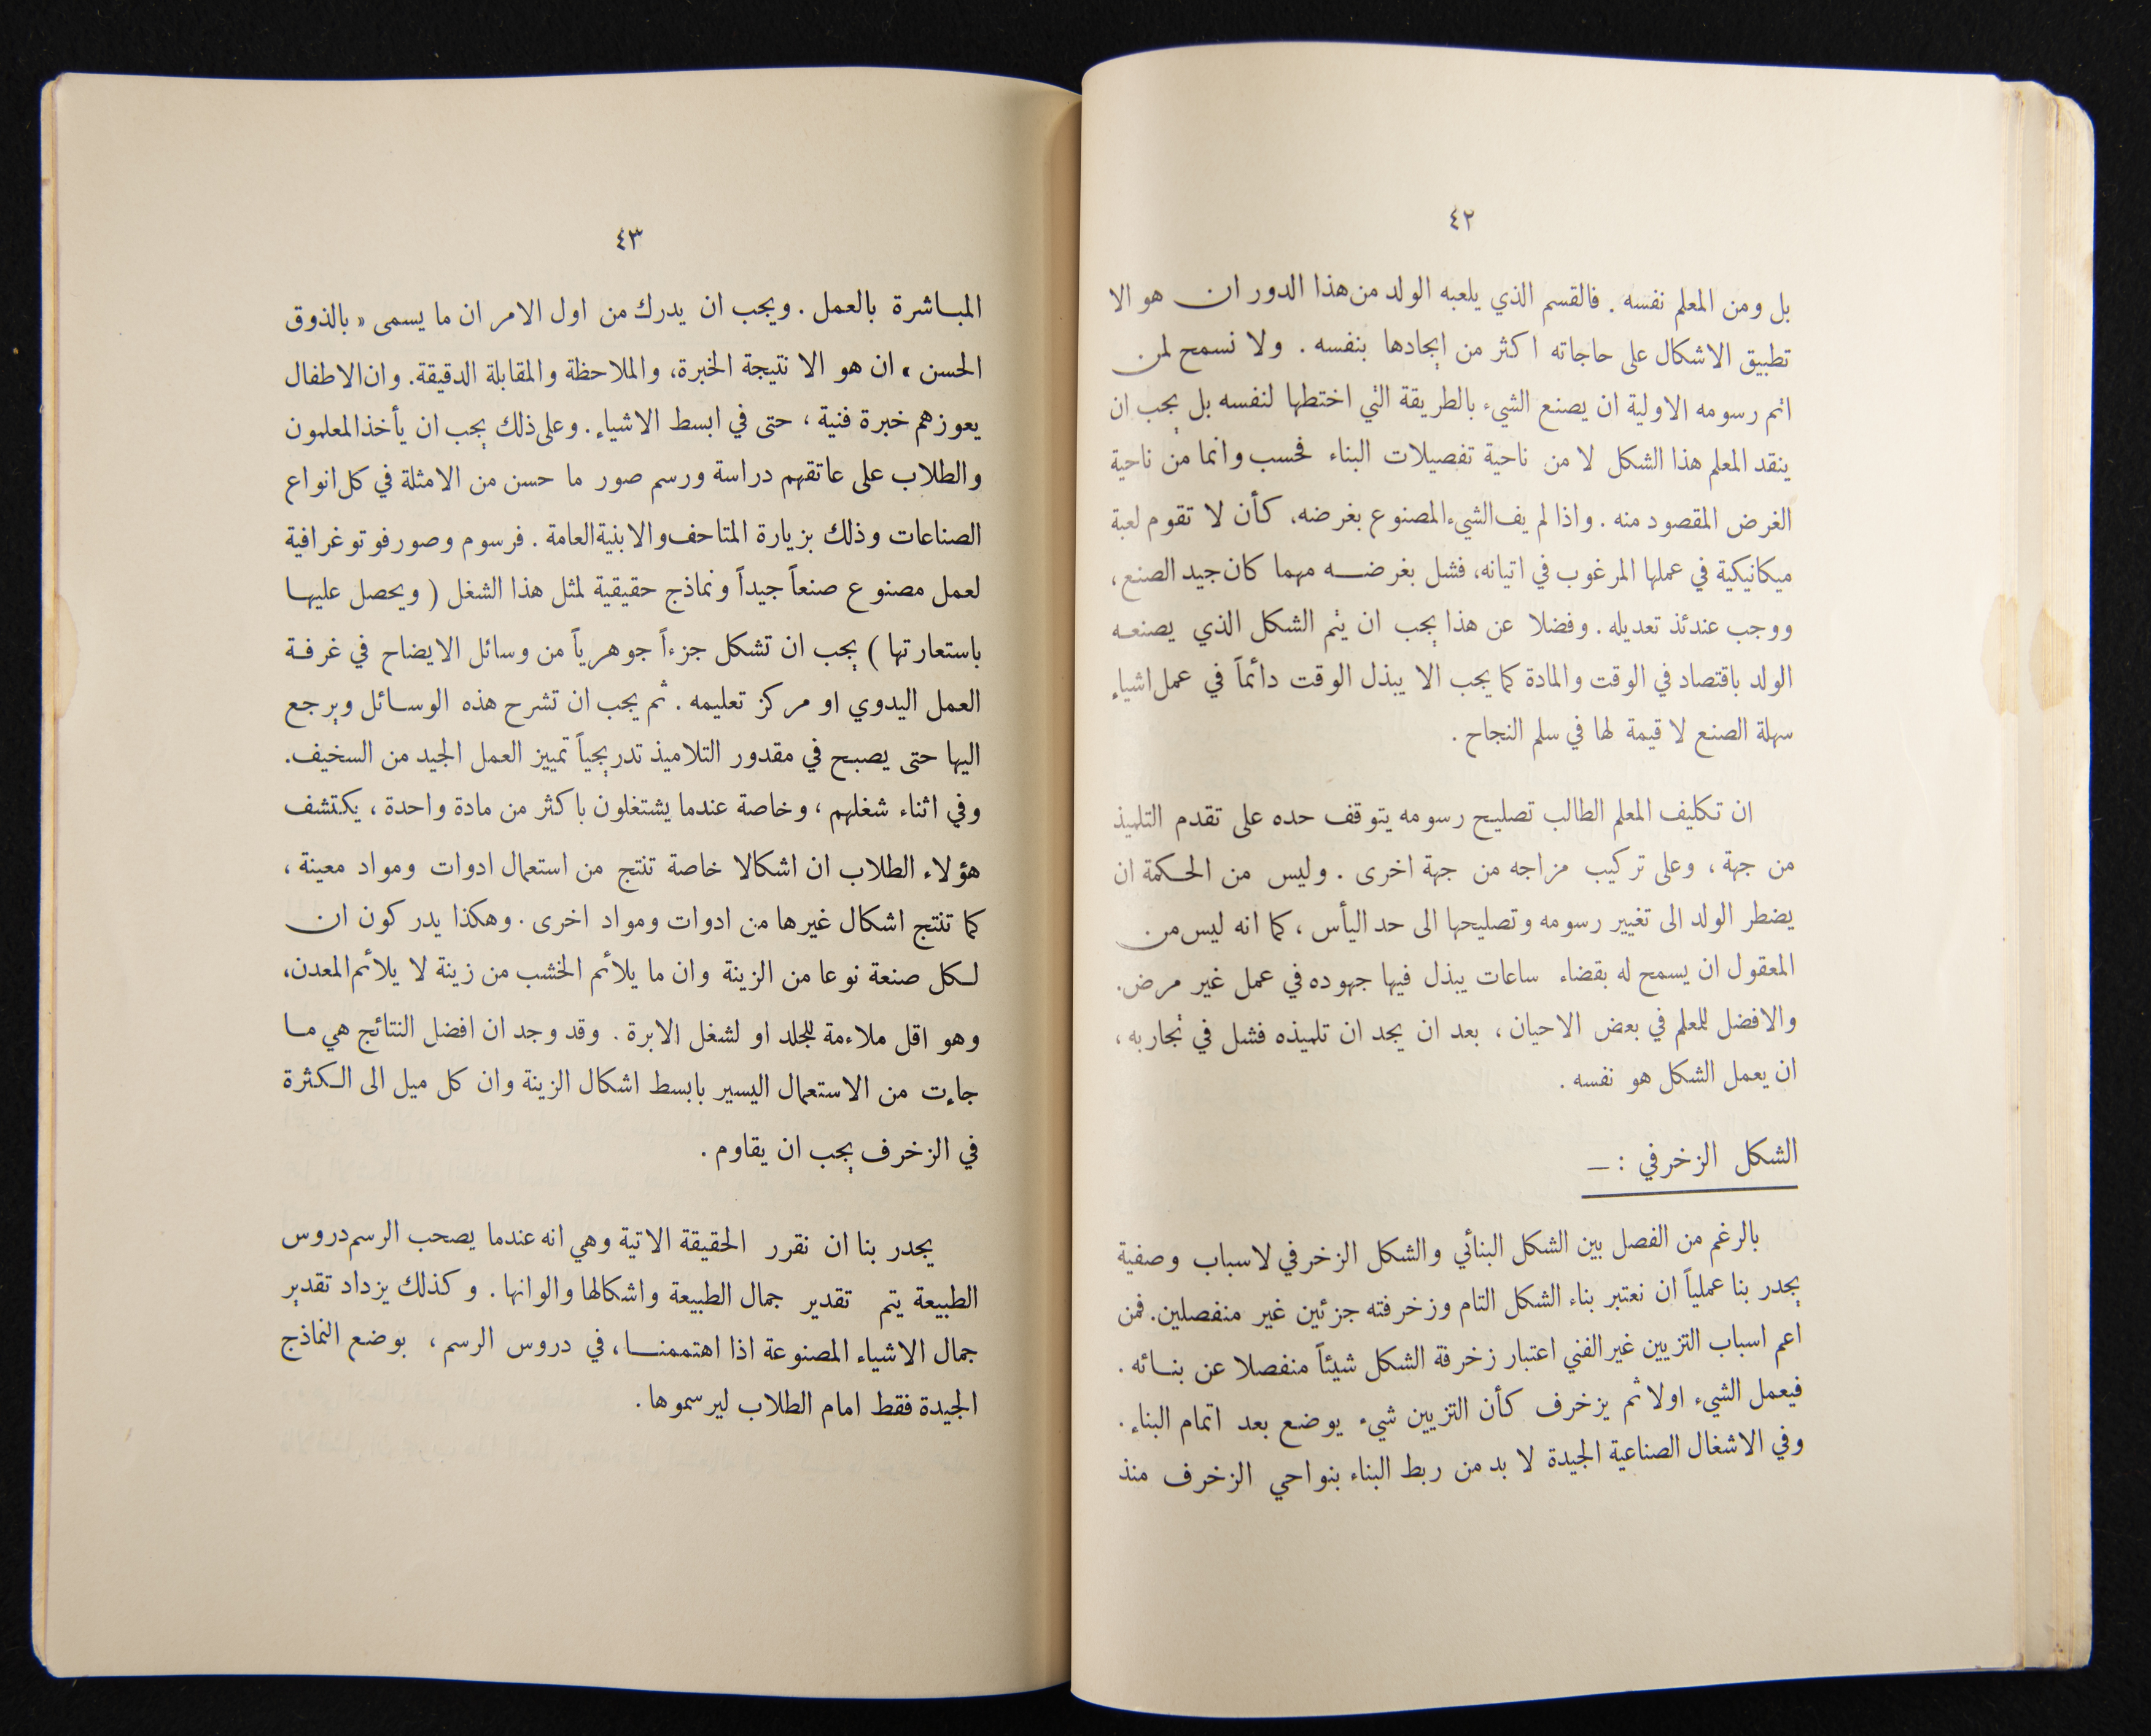 ٤٢
بل ومن المعلم نفسه . فالقسم الذي يلعبه الولد من هذا الدور ان هو الا
تطبيق الاشكال على حاجاته اكثر من إيجادها بنفسه . ولا نسمح لمن
اتم رسومه الاولية ان يصنع الشيء بالطريقة التي اختطها لنفسه بل يجب ان
ينقد المعلم هذا الشكل لا من ناحية تفصيلات البناء فحسب وانما من ناحية
الغرض المقصود منه . واذا لم يف الشيء المصنوع بغرضه، كأن لا تقوم لعبة
ميكانيكية في عملها المرغوب في اتيانه، فشل بغرضه مهما كان جيد الصنع،
ووجب عندئذ تعديله . وفضلا عن هذا يجب ان يتم الشكل الذي يصنعه
الولد باقتصاد في الوقت والمادة كما يجب الا يبذل الوقت دائماً في عمل اشياء
سهلة الصنع لا قيمة لها في سلم النجاح .
ان تكليف المعلم الطالب تصليح رسومه يتوقف حده على تقدم التلميذ
من جهة ، وعلى تركيب مزاجه من جهة اخرى . وليس من الحكمة ان
يضطر الولد الى تغيير رسومه وتصليحها الى حد اليأس ، كما انه ليس من
المعقول ان يسمح له بقضاء ساعات يبذل فيها جهوده في عمل غير مرض.
والافضل للمعلم في بعض الاحيان ، بعد ان يجد ان تلميذه فشل في تجاربه ،
ان يعمل الشكل هو نفسه .
الشكل الزخرفي : —
بالرغم من الفصل بين الشكل البنائي والشكل الزخرفي لاسباب وصفية
يجدر بنا عملياً ان نعتبر بناء الشكل التام وزخرفته جزئين غير منفصلين. فمن
اعم اسباب التزيين غير الفني اعتبار زخرفة الشكل شيئاً منفصلا عن بنائه .
فيعمل الشيء اولا ثم يزخرف كأن التزيين شيء يوضع بعد اتمام البناء .
وفي الاشغال الصناعية الجيدة لا بد من ربط البناء بنواحي الزخرف منذ
٤٣
المباشرة بالعمل . ويجب ان يدرك من اول الامر ان ما يسمى « بالذوق
الحسن » ان هو الا نتيجة الخبرة، والملاحظة والمقابلة الدقيقة. وان الاطفال
يعوزهم خبرة فنية ، حتى في ابسط الاشياء. وعلى ذلك يجب ان يأخذ المعلمون
والطلاب على عاتقهم دراسة ورسم صور ما حسن من الامثلة في كل انواع
الصناعات وذلك بزيارة المتاحف والابنية العامة . فرسوم وصور فوتوغرافية
لعمل مصنوع صنعاً جيداً ونماذج حقيقية لمثل هذا الشغل ( ويحصل عليها
باستعارتها ) يجب ان تشكل جزءاً جوهرياً من وسائل الايضاح في غرفة
العمل اليدوي او مركز تعليمه . ثم يجب ان تشرح هذه الوسائل ويرجع
اليها حتى يصبح في مقدور التلاميذ تدريجياً تمييز العمل الجيد من السخيف.
وفي اثناء شغلهم ، وخاصة عندما يشتغلون باكثر من مادة واحدة ، يكتشف
هؤلاء الطلاب ان اشكالا خاصة تنتج من استعمال ادوات ومواد معينة ،
كما تنتج اشكال غيرها من ادوات ومواد اخرى . وهكذا يدركون ان
لكل صنعة نوعا من الزينة وان ما يلائم الخشب من زينة لا يلائم المعدن،
وهو اقل ملاءمة للجلد او لشغل الابرة . وقد وجد ان افضل النتائج هي ما
جاءت من الاستعمال اليسير بابسط اشكال الزينة وان كل ميل الى الكثرة
في الزخرف يجب ان يقاوم .
يجدر بنا ان نقرر الحقيقة الاتية وهي انه عندما يصحب الرسم دروس
الطبيعة يتم تقدير جمال الطبيعة واشكالها والوانها . وكذلك يزداد تقدير
جمال الاشياء المصنوعة اذا اهتممنا ، في دروس الرسم ، بوضع النماذج
الجيدة فقط امام الطلاب ليرسموها .